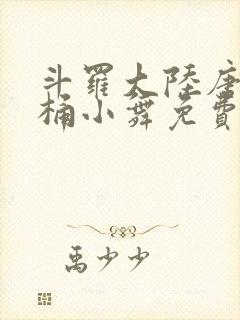 斗羅大陸唐
桶小舞免費
禹少少